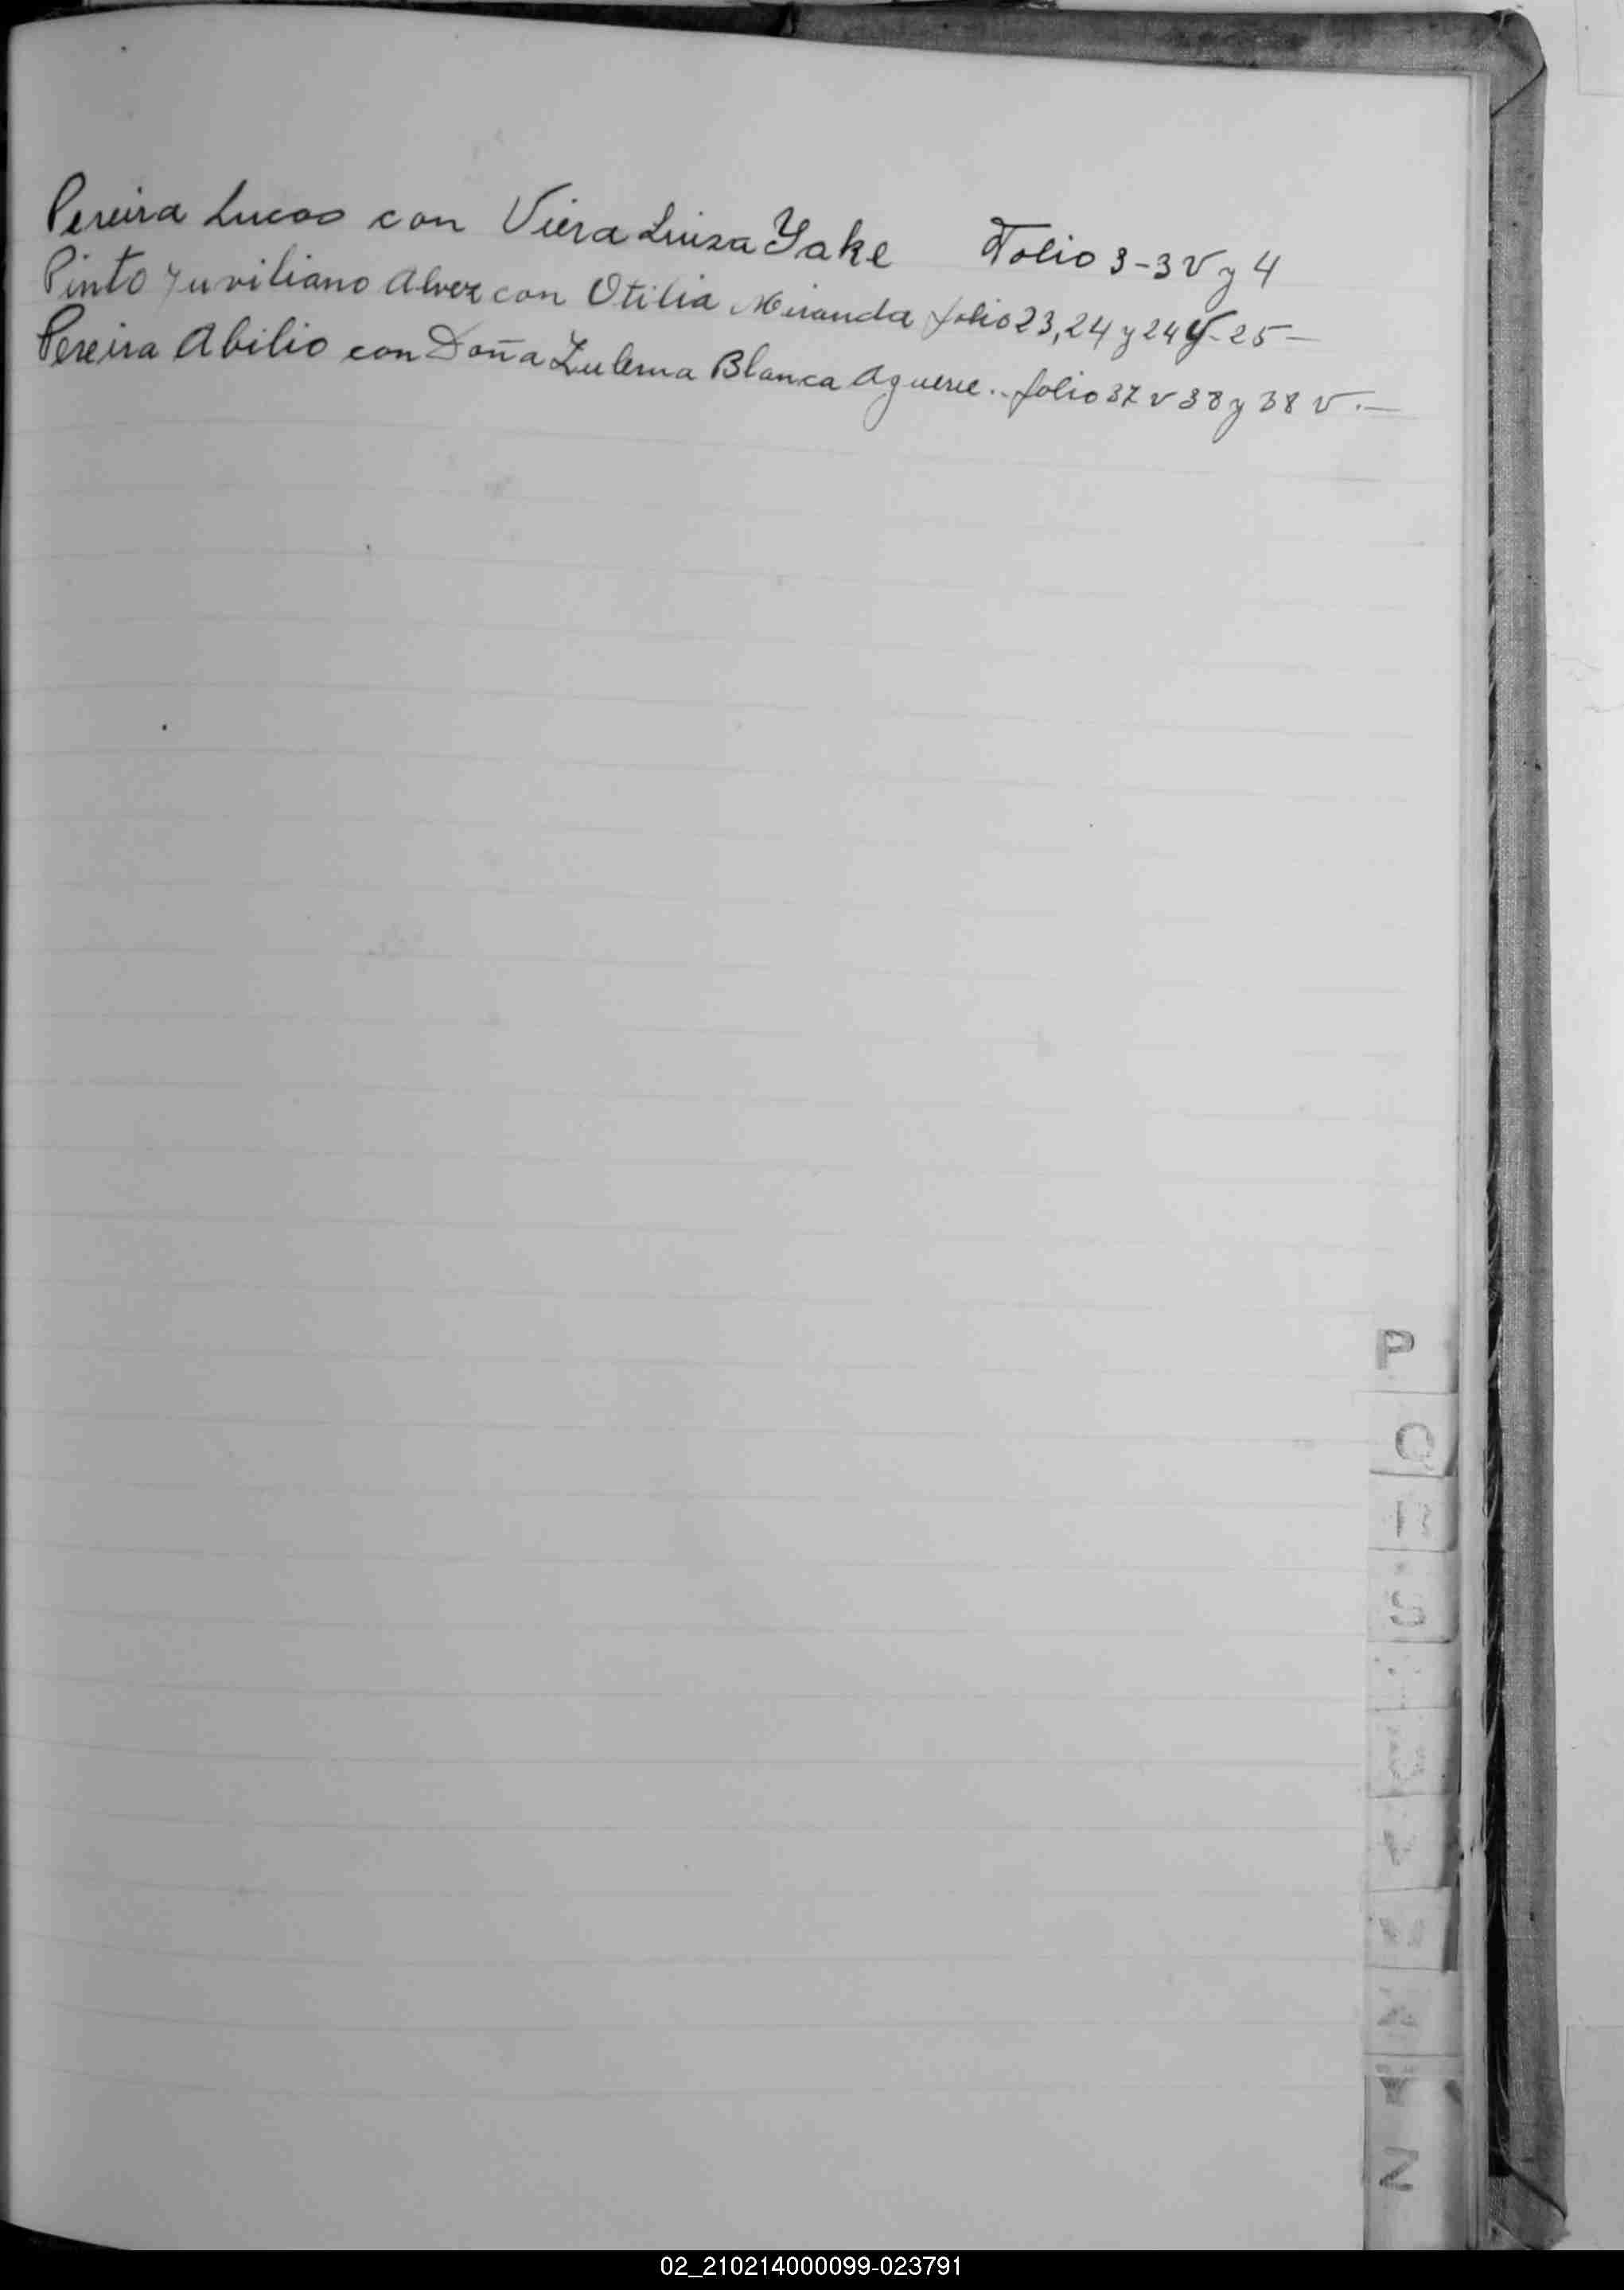 Pereira Lucas con Viera Luisa Yake Folio 3-3v y 4
Pinto Juviliano Alvez con Otilia Miranda folio 23, 24 y 24 v-25-
Pereira Abilio con Doña Zulema Blanca Aguerre.. folio 37 v 38 y 38 v.-
P
Q
R
S
Z
02_210214000099-023791